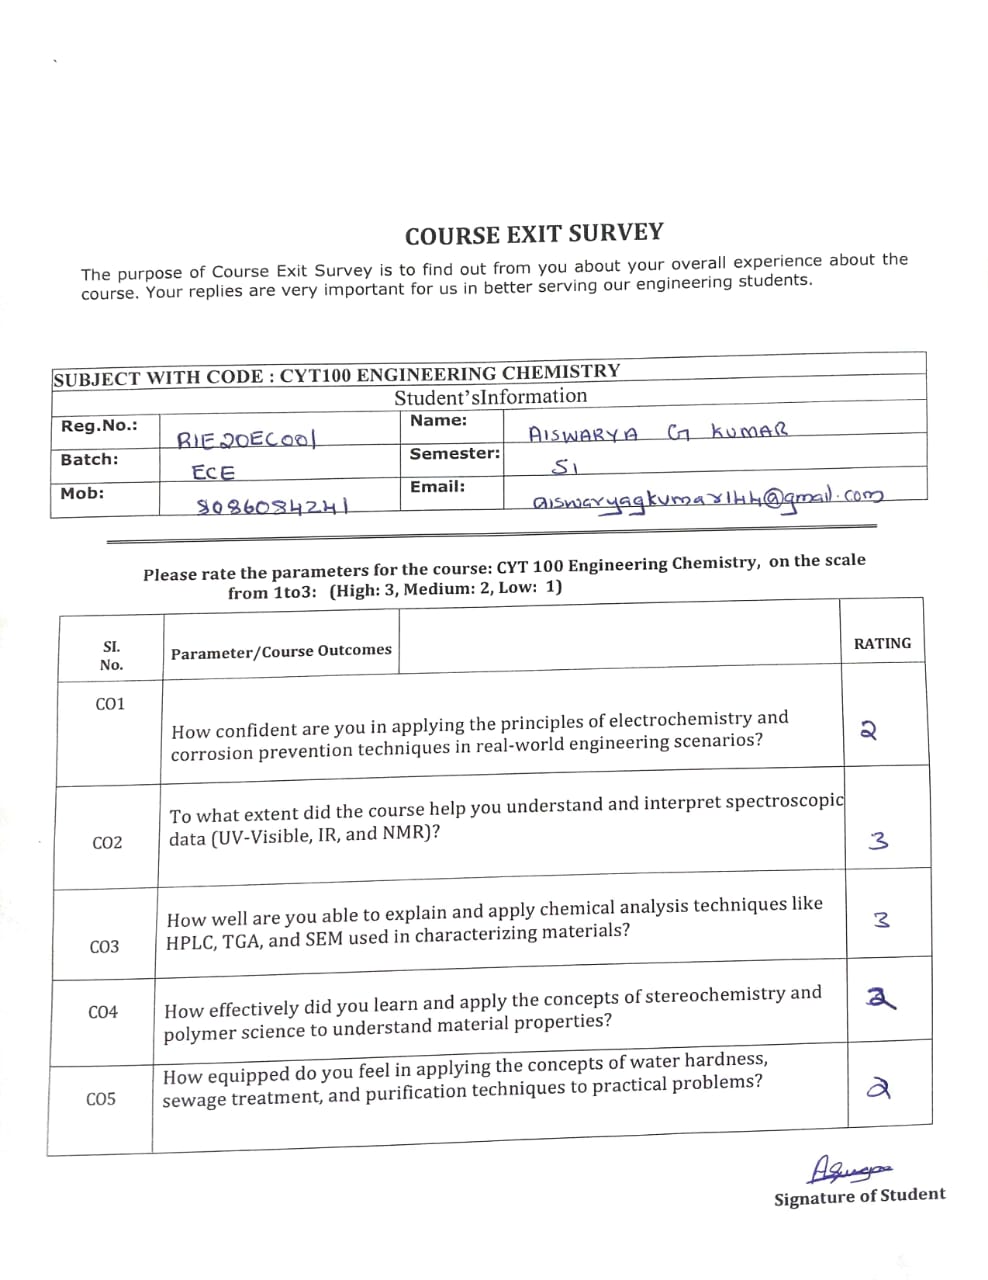 COURSE EXIT SURVEY
The purpose of Course Exit Survey is to find out from you about your overall experience about the
course. Your replies are very important for us in better serving our engineering students.
SUBJECT WITH CODE : CYT100 ENGINEERING CHEMISTRY
Student'sInformation
Reg.No.: RIE20EC001 Name: AISWARYA G KUMAR
Batch: ECE Semester: S1
Mob: 8086084241 Email: aiswaryagkumar144@gmail.com
Please rate the parameters for the course: CYT 100 Engineering Chemistry, on the scale
from 1to3: (High: 3, Medium: 2, Low: 1)
SI.
No.
Parameter/Course Outcomes
RATING
CO1
How confident are you in applying the principles of electrochemistry and
corrosion prevention techniques in real-world engineering scenarios?
2
CO2
To what extent did the course help you understand and interpret spectroscopic
data (UV-Visible, IR, and NMR)?
3
CO3
How well are you able to explain and apply chemical analysis techniques like
HPLC, TGA, and SEM used in characterizing materials?
3
CO4
How effectively did you learn and apply the concepts of stereochemistry and
polymer science to understand material properties?
2
CO5
How equipped do you feel in applying the concepts of water hardness,
sewage treatment, and purification techniques to practical problems?
2
Signature of Student